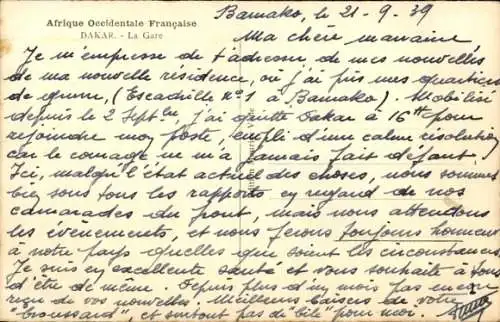 Afrique Occidentale Française
DAKAR. - La Gare
Bamako, le 21-9-39
Ma chère marraine
Je m'empresse de t'adresser de mes nouvelles
de ma nouvelle résidence, où j'ai pris mes quartiers
de guerre, (Escadrille n° 1 à Bamako). Mobilisé
depuis le 2 Septbre, j'ai quitté Dakar à 16 pour
rejoindre mon poste, empli d'une calme résolution
car le courage ne m'a jamais fait défaut!
Ici, malgré l'état actuel des choses, nous sommes
bien sous tous les rapports en regard de nos
camarades du front, mais nous attendons
les évènements, et nous ferons toujours honneur
à notre pays quelles que soient les circonstances.
Je suis en excellente santé et vous souhaite à tous
d'être de même. Depuis plus d'un mois pas encore
reçu de vos nouvelles. Meilleurs baisers de votre
"broussard", et surtout pas de "bile" pour moi.